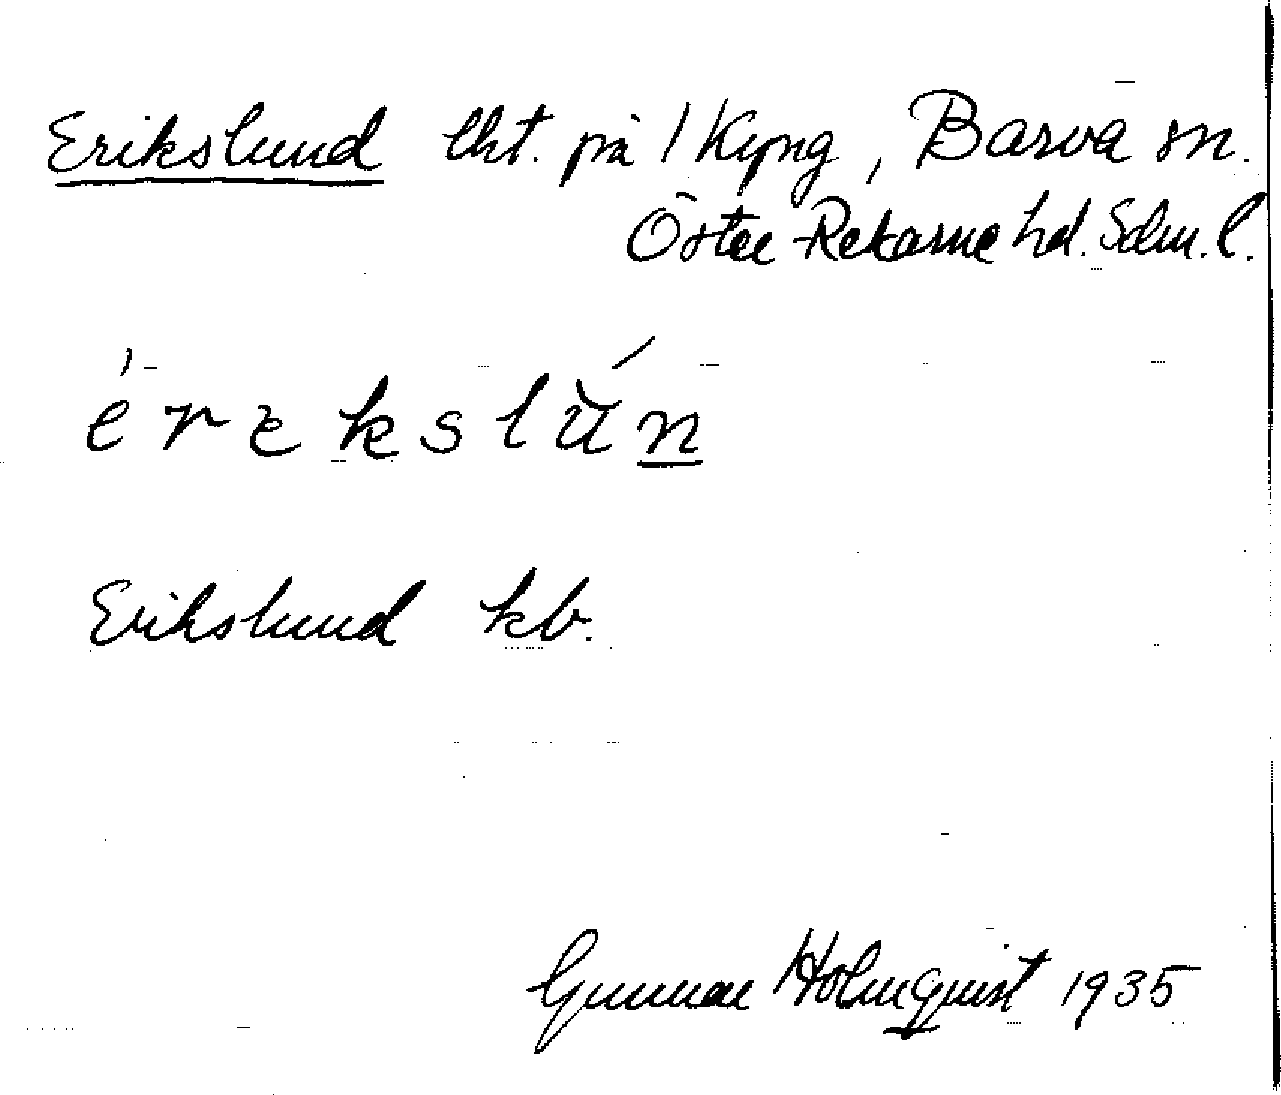 Erikslund lht. på 1 Kyng, Barva sn.
Öster-Rekarne hd. Sdm. l.
érekslún
Erikslund kb.
Gunnar Holmquist 1935